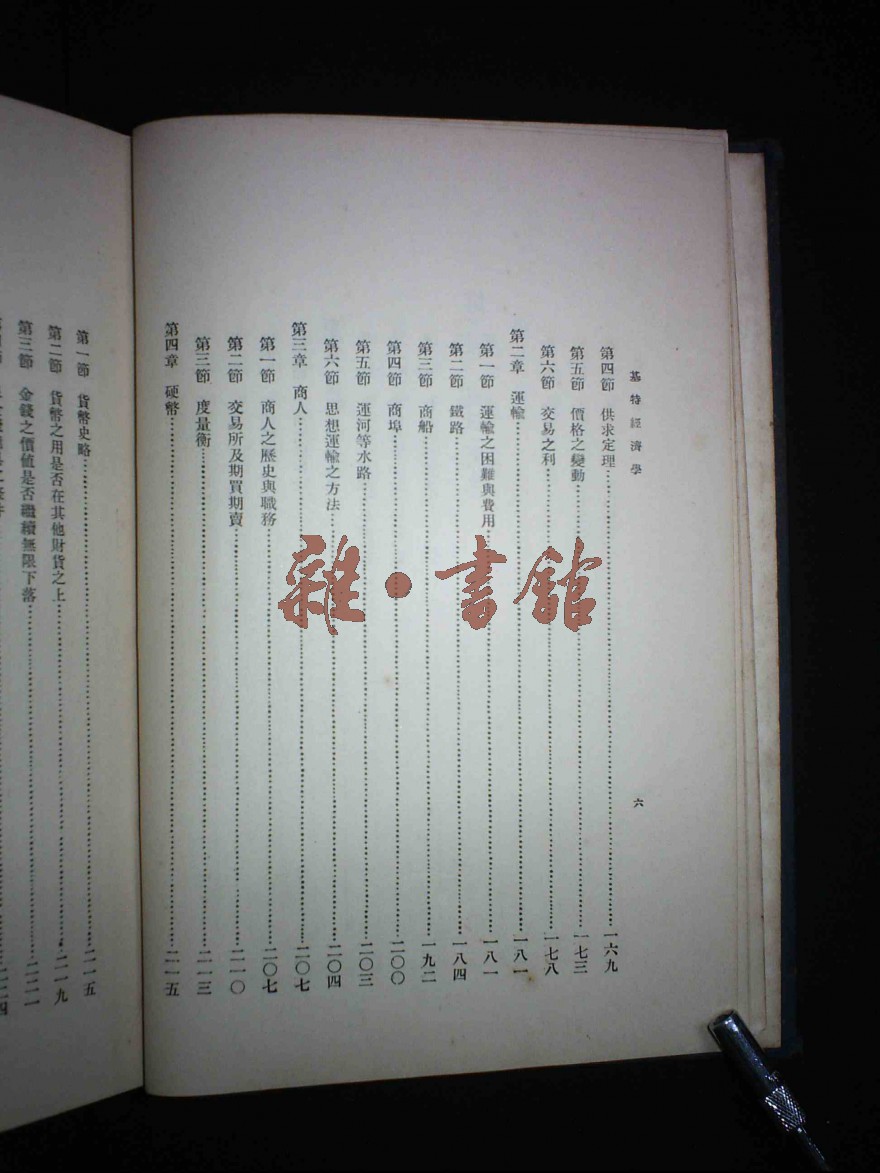 基特經濟學
六
第四節 供求定理 一六九
第五節 價格之變動 一七三
第六節 交易之利 一七八
第二章 運輸 一八一
第一節 運輸之困難與費用 一八一
第二節 鐵路 一八四
第三節 商船 一九二
第四節 商埠 二〇〇
第五節 運河等水路 二〇三
第六節 思想運輸之方法 二〇四
第三章 商人 二〇七
第一節 商人之歷史與職務 二〇七
第二節 交易所及期買期賣 二一〇
第三節 度量衡 二一三
第四章 硬幣 二一五
第一節 貨幣史略 二一五
第二節 貨幣之用是否在其他財貨之上 二一九
第三節 金錢之價值是否繼續無限下落 二二一
雜·書館